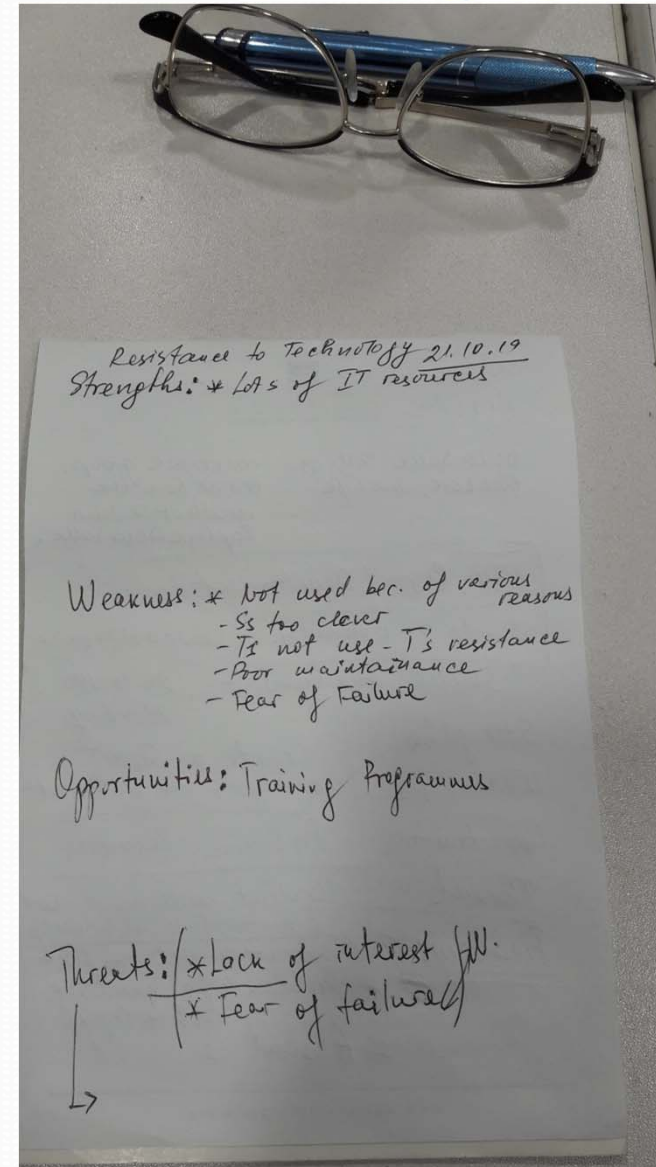 Resistance to Technology 21.10.19
Strengths: * Lots of IT resources
Weakness: * Not used bec. of various
reasons
- Ss too clever
- Ts not use - T's resistance
- Poor maintainance
- Fear of Failure
Opportunities: Training Programmes
Threats: * Lack of interest } W.
* Fear of failure